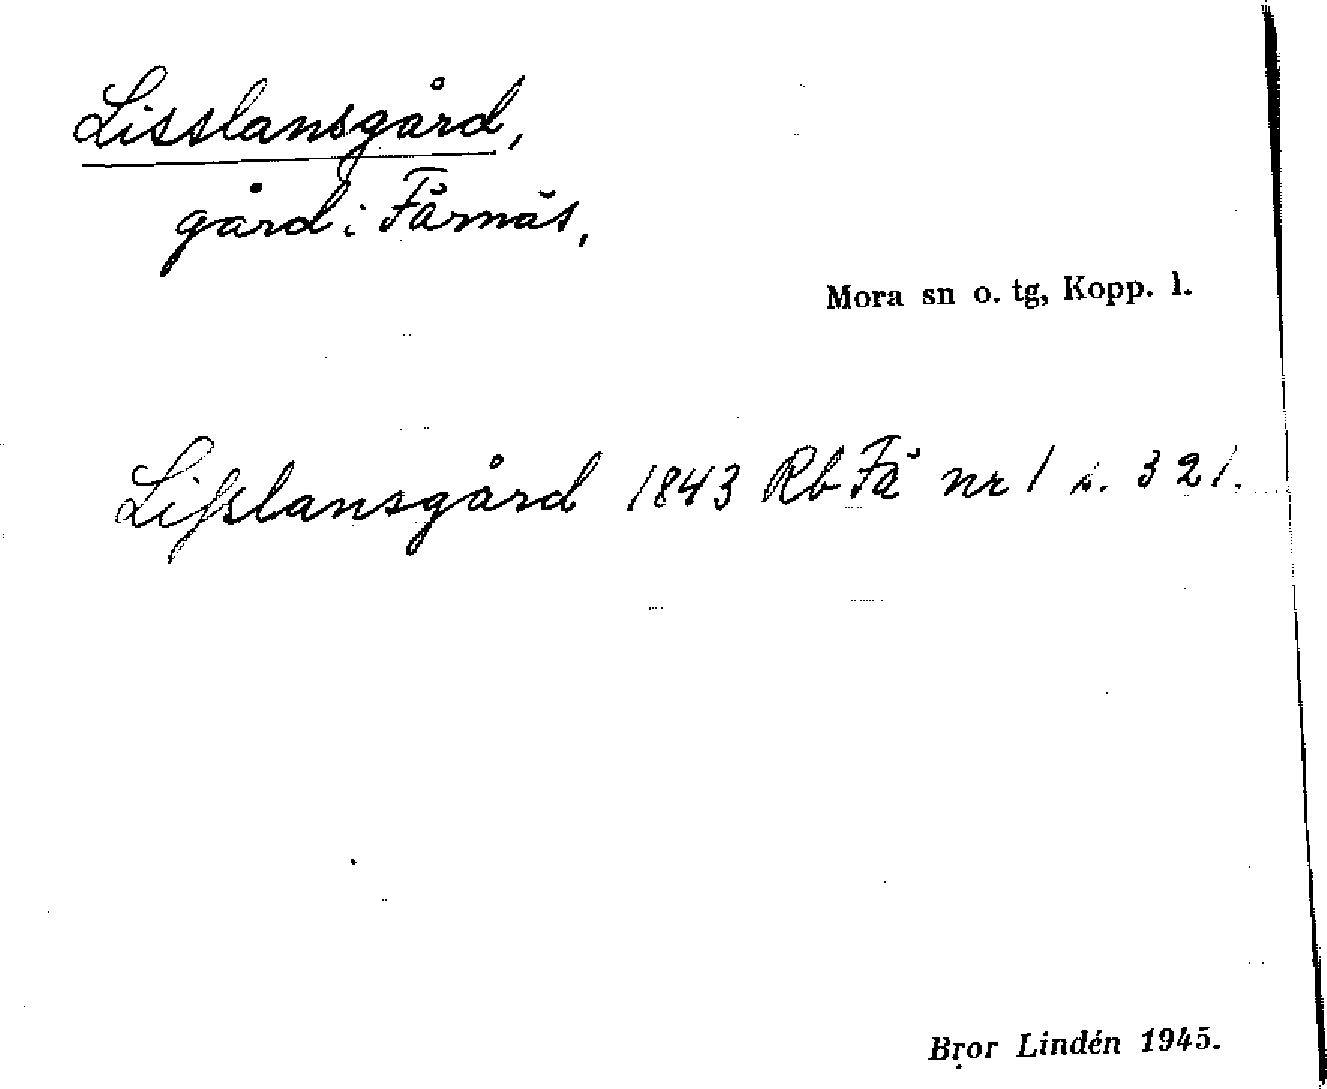 Lisslansgård,
gård i Färnäs,
Mora sn o. tg, Kopp. l.
Liſslansgård 1843 Rb Fä nr 1 s. 321.
Bror Lindén 1945.